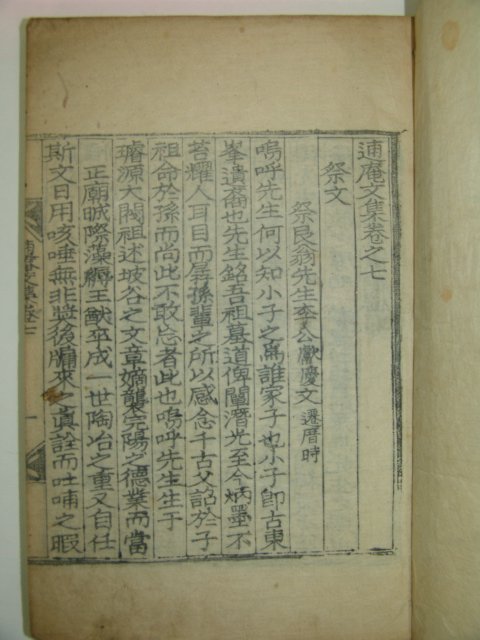 逋庵文集卷之七
祭文
祭艮翁先生李公獻慶文 遷厝時
嗚呼先生何以知小子之爲誰家子也小子卽古東
峯遺裔也先生銘吾祖墓道俾闡潛光至今炳墨不
苔耀人耳目而孱孫輩之所以感念千古父詔於子
祖命於孫而尚此不敢忘者此也嗚呼先生生于
璿源大閥祖述坡谷之文章嫡襲完陽之德業而當
正廟晠際藻黼王猷平成一世陶冶之重又自任
斯文日用咳唾無非奬後牖來之眞詮而吐哺之暇
文集卷七
一